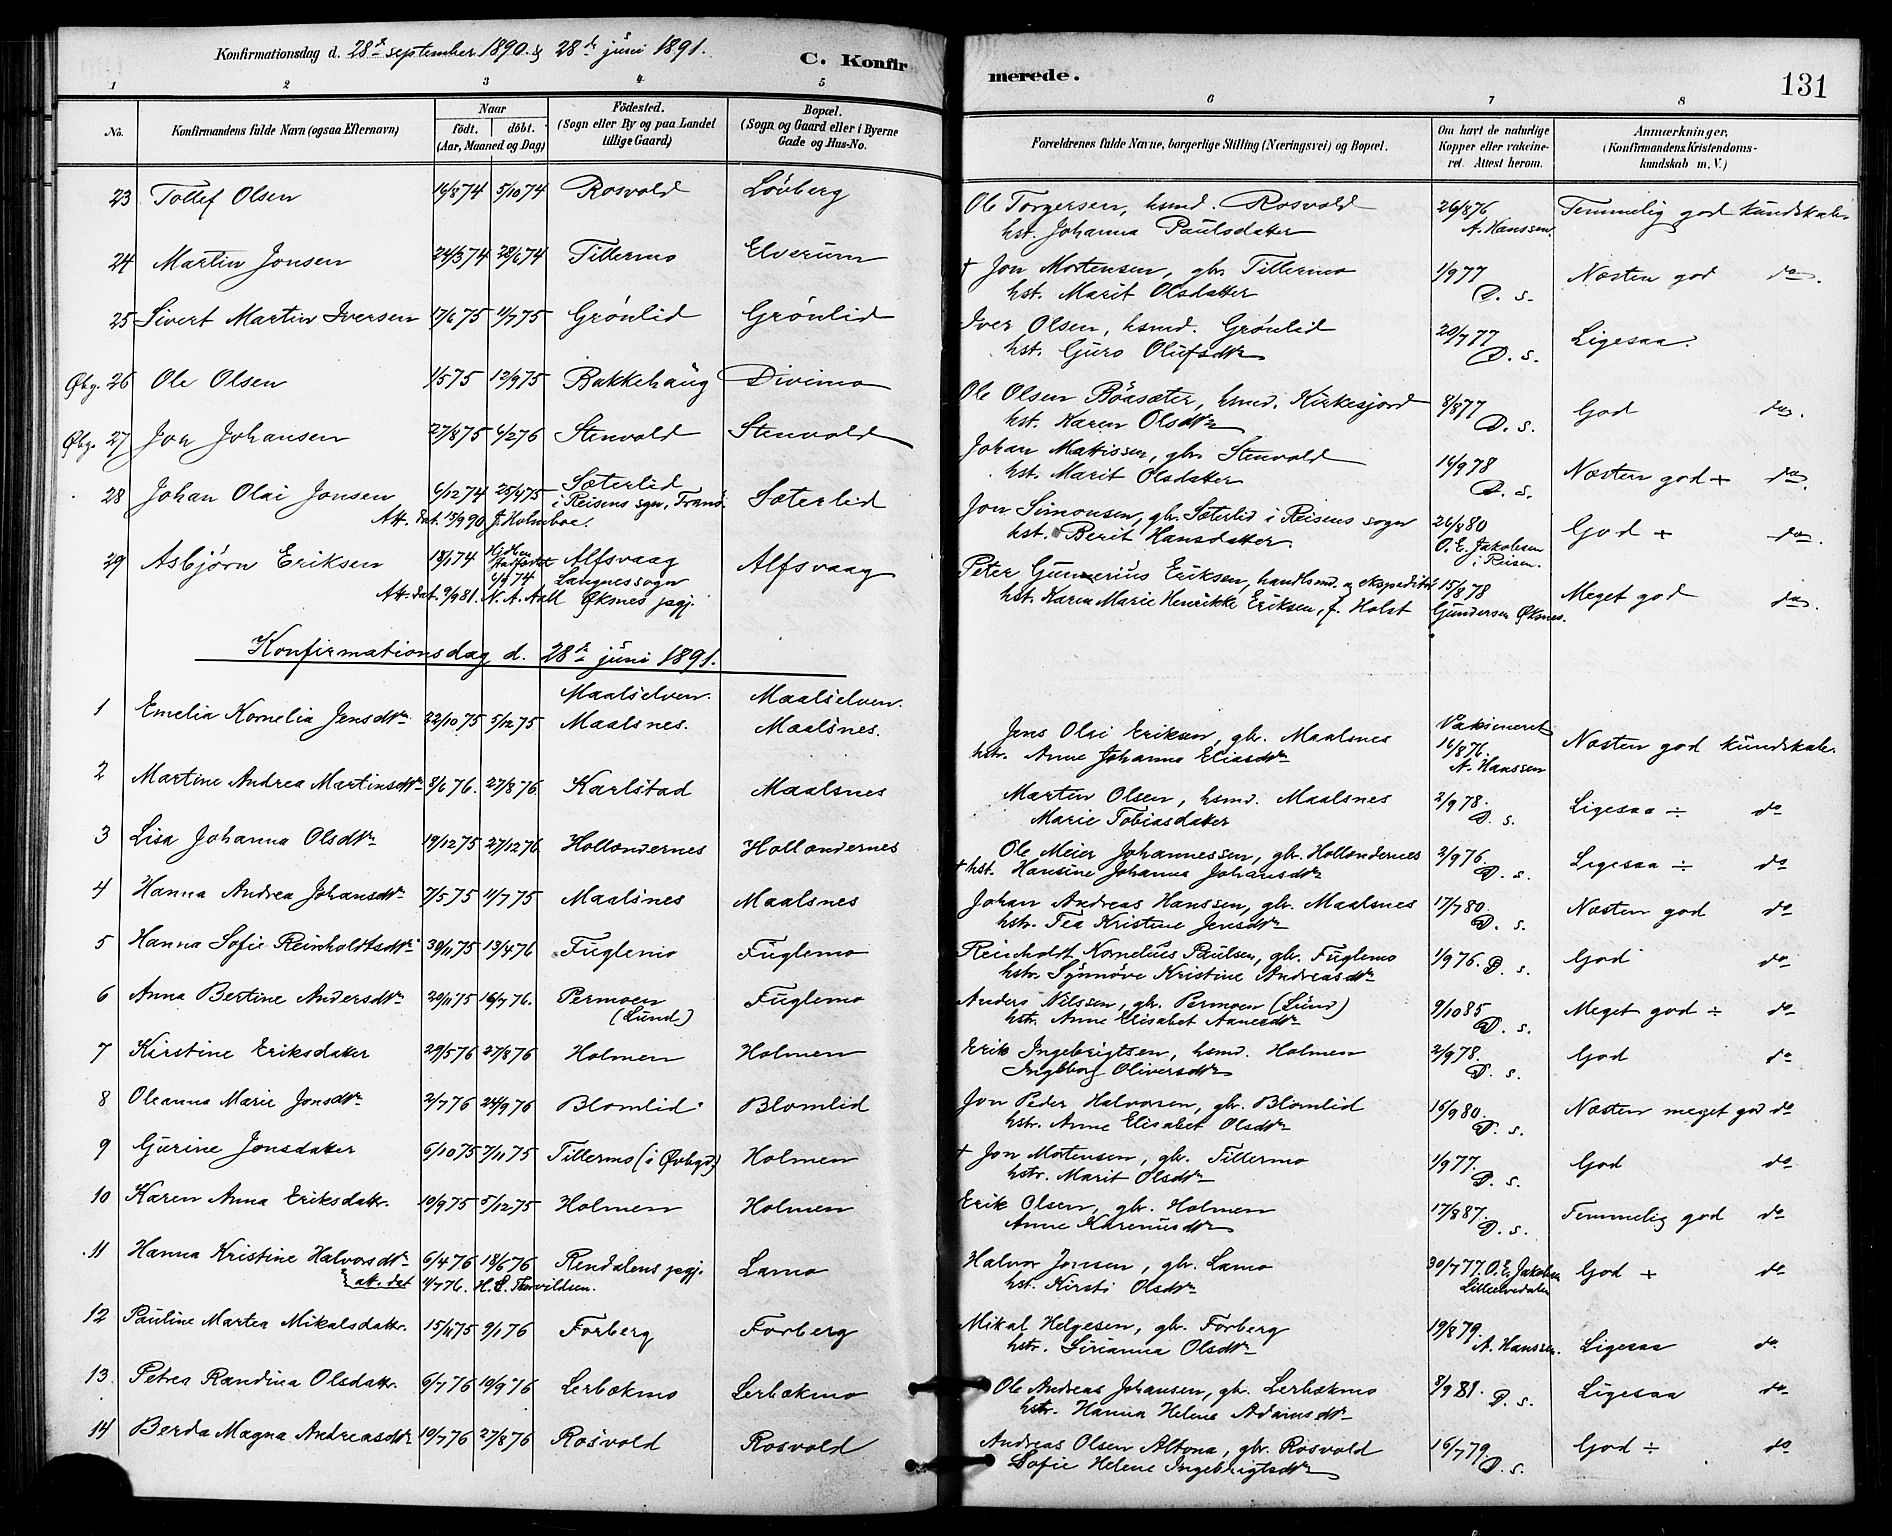 Konfirmationsdag d. 28de september 1890 & 28de juni 1891.
C. Konfirmerede.
131
1 2 3 4 5 6 7 8
No.
Konfirmandens fulde Navn (ogsaa Efternavn)
Naar
födt. döbt.
(Aar, Maaned og Dag)
Födested.
(Sogn eller By og paa Landet
tillige Gaard)
Bopæl.
(Sogn og Gaard eller i Byerne
Gade og Hus-No.
Forældrenes fulde Navne, borgerlige Stilling (Næringsvei) og Bopæl.
Om havt de naturlige
Kopper eller vakcine-
ret. Attest herom.
Anmærkninger.
(Konfirmandens Kristendoms-
kundskab m. V.)
23 Tollef Olsen 16/8 74 5/10 74 Rosvold Løvberg Ole Torgersen, hsmd. Rosvold 26/8 76 Temmelig god kundskab
hst. Johanna Paulsdatter A. Hanssen.
24 Martin Jonsen 24/3 74 28/6 74 Tillermo Elverum † Jon Mortensen, gbr. Tillermo 1/9 77 Næsten god do.
hst. Marit Olsdatter D. s.
25 Sivert Martin Iversen 17/6 75 11/7 75 Grönlid Grönlid Iver Olsen, hsmd. Grönlid 20/7 77 Ligesaa.
hst. Guro Olufsdtr D. s.
Øbg. 26 Ole Olsen 1/5 75 12/9 75 Bakkehaug Divimo Ole Olsen Böasæter, hsmd. Kirkesjord 8/8 77 God do.
hst. Karen Olsdtr D. s.
Øbg. 27 Jon Johansen 27/8 75 6/2 76 Stenvold Stenvold Johan Matissen, gbr. Stenvold 16/9 78 Næsten god + do.
hst. Marit Olsdatter D. s.
28 Johan Olai Jonsen 6/12 74 25/4 75 Sæterlid Sæterlid Jon Simonsen, gbr. Sæterlid i Reisens sogn 26/8 80 God + do.
i Reisens sgn, Tranö
Att. dat. 15/9 90 J. Holmboe. hst. Berit Hansdatter. O. E. Jakobsen
i Reisen.
29 Asbjørn Eriksen 18/1 74 6/4 74 Alfsvaag Alfsvaag Peter Gunnerius Eriksen, handlsmd. og ekspeditör 15/8 78 Meget god do.
Langnes sogn
Att. dat. 9/9 81. N. A. Aall Øksnes pgj. hst. Karen Marie Henrikke Eriksen, f. Holst Gundersen Øksnes.
Konfirmationsdag d. 28de juni 1891.
1 Emelia Kornelia Jensdtr 22/10 75 5/12 75 Maalselven. Maalsnes. Maalselven. Maalsnes. Jens Olai Eriksen, gbr. Maalsnes Vaksineret 16/8 76. Næsten god kundskab.
hstr. Anne Johanna Eliasdtr A. Hanssen
2 Martine Andrea Martinsdtr 8/6 76. 27/8 76. Karlstad Maalsnes Martin Olsen, hsmd. Maalsnes 2/9 78. Ligesaa ÷ do
Marie Tobiasdatter D. s.
3 Lisa Johanna Olsdtr 19/12 75 27/12 76 Hollændernes Hollændernes Ole Meier Johannessen, gbr. Hollændernes 2/9 76. Ligesaa ÷ do
† hst. Hansine Johanna Johansdtr D. s.
4 Hanna Andrea Johansdtr 7/5 75 11/7 75 Maalsnes Maalsnes Johan Andreas Hanssen, gbr. Maalsnes 17/7 80. Næsten god do
hstr. Tea Kristine Jensdtr D. s.
5 Hanna Sofie Reinholdtsdtr 30/11 75 13/4 76 Fuglemo Fuglemo Reinholdt Kornelius Paulsen, gbr. Fuglemo 1/9 76. D. s. God do
hstr. Synnöve Kristine Andreasdtr
6 Anna Bertine Andersdtr 20/11 75 16/7 76. Permoen Fuglemo Anders Nilssen, gbr. Permoen (Lund) 9/10 85 Meget god ÷ do
(Lund) hstr. Anne Elisabet Aanesdtr D. s.
7 Kirstine Eriksdatter 29/5 76 27/8 76 Holmen Holmen Erik Ingebrigtsen, hsmd. Holmen 2/9 78. God do
Ingeborg Oliversdtr D. s.
8 Oleanna Marie Jonsdtr 2/7 76 24/9 76 Blomlid Blomlid Jon Peder Halvorsen, gbr. Blomlid 16/9 80. Næsten meget god do
hstr. Anne Elisabet Olsdtr D. s.
9 Gurine Jonsdatter 6/10 75 7/11 75 Tillermo (i Øvbgd) Holmen † Jon Mortensen, gbr. Tillermo 1/9 77. God do
hstr. Marit Olsdtr D. s.
10 Karen Anna Eriksdatr. 19/9 75 5/12 75 Holmen Holmen Erik Olsen, gbr. Holmen 17/8 87. Temmelig god do
Anne Karenusdtr D. s.
11 Hanna Kristine Halvorsdtr 6/4 76 18/6 76 Rendalens pgj. Lamo Halvor Jonsen, gbr. Lamo 30/7 77. O. E. Jakobsen God + do
att. dat 11/7 76. hst. Kirsti Olsdtr
12 Pauline Martea Mikalsdattr. 15/11 75 9/1 76 Forberg Forberg Mikal Helgesen, gbr. Forberg 19/8 79. Ligesaa do
hstr. Sirianna Olsdtr A. Hanssen.
13. Petrea Randina Olsdattr. 6/7 76 10/9 76 Lerbækmo Lerbækmo Ole Andreas Johansen, gbr. Lerbækmo 8/9 81. D. s. Ligesaa do
hstr. Hanna Helene Adamsdtr
14 Berda Magna Andreasdtr 19/7 76 27/8 76 Rosvold Rosvold Andreas Olsen Altona, gbr. Rosvold 16/7 79. God ÷ do
Sofie Helene Ingebrigtsdtr D. s.